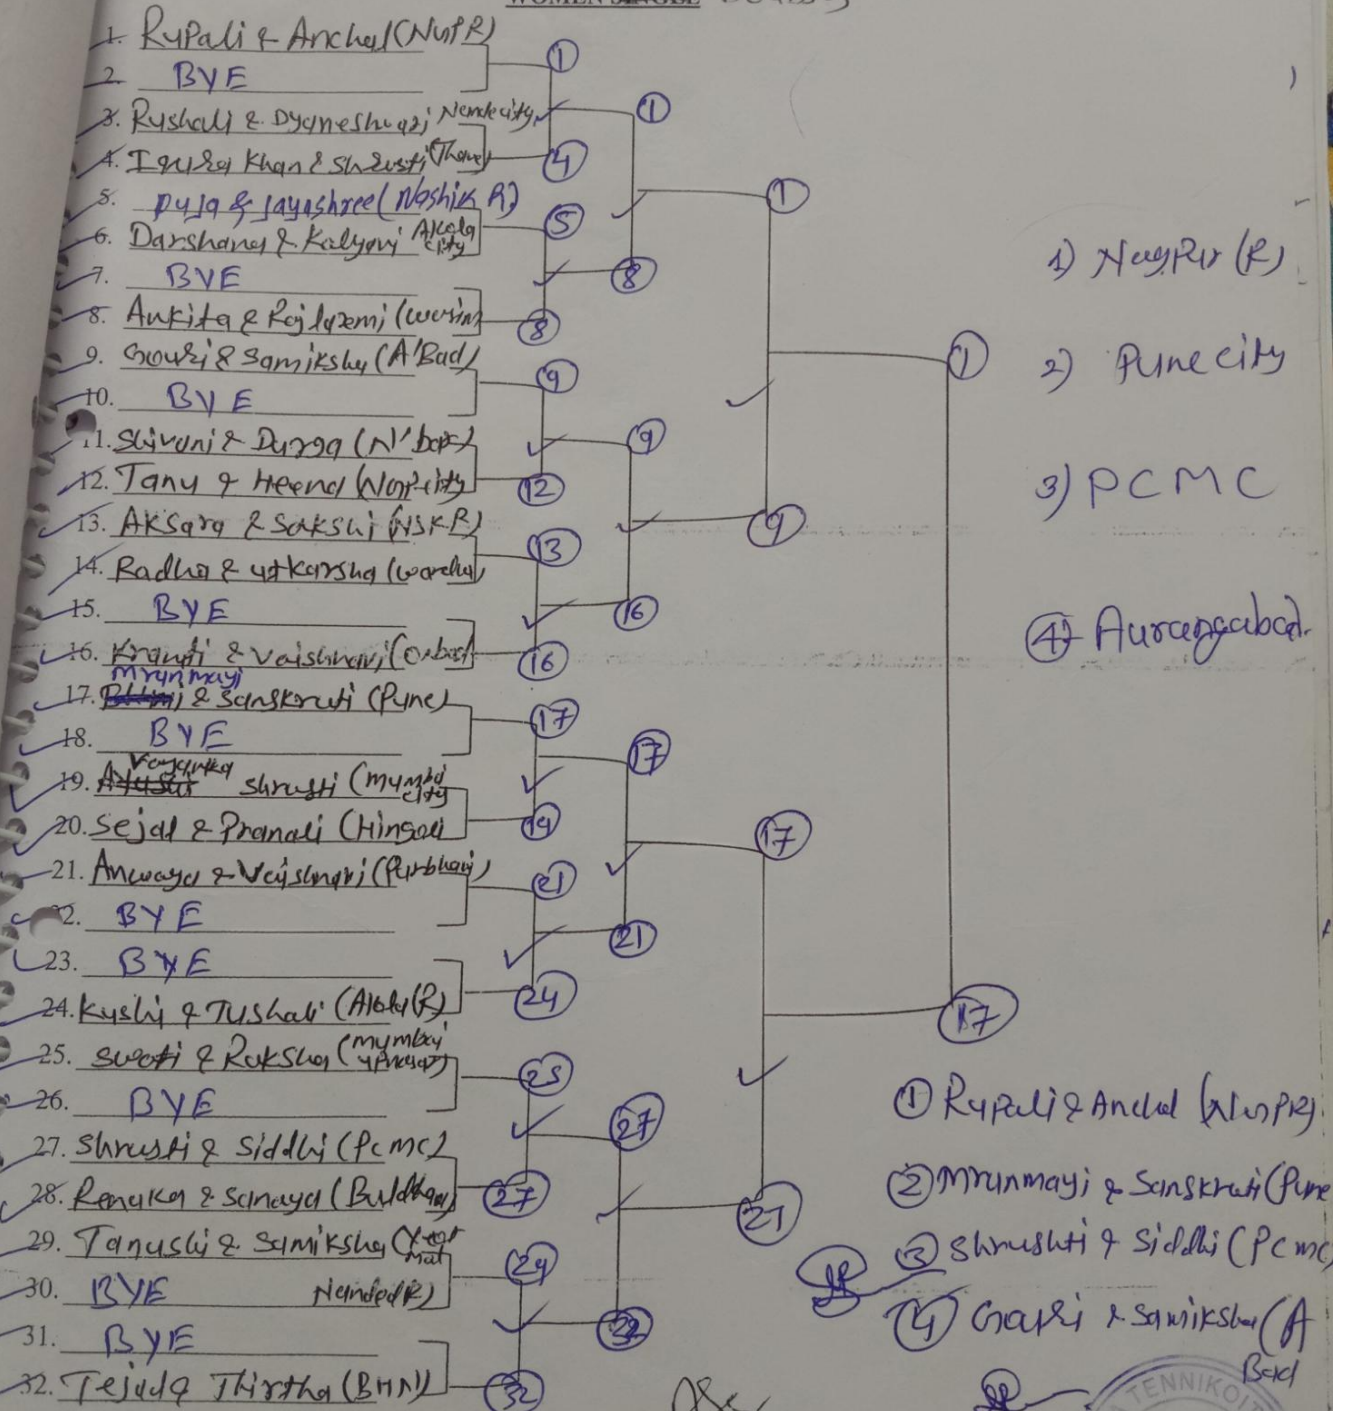 WOMEN SINGLE
1. Rupali & Anchal (NgPR)
2. BYE
3. Rushali & Dyaneshwari Nandedcity
4. Iqura Khan & Shrusti (Thane)
5. Puja & Jayashree (Nashik R)
6. Darshana & Kalyani Akola city
7. BYE
8. Ankita & Rajlaxmi (Wasim)
9. Gouri & Samiksha (A'Bad)
10. BYE
11. Shivani & Durga (N'bar)
12. Tanu & Heena (Nagpcity)
13. Aksara & Sakshi (NSKR)
14. Radha & Utkarsha (Wardha)
15. BYE
16. Kranti & Vaishnavi (O'sbad)
Mrunmayi
17. & Sanskruti (Pune)
18. BYE
19. Shrusti (Mumbai city
20. Sejal & Pranali (Hingoli
21. Anwaya & Vaishnavi (Parbhani)
22. BYE
23. BYE
24. Kushi & Tushali (Akola(R)
25. Swati & Raksha (Mumbai upnagar)
26. BYE
27. Shrusti & Siddhi (PCMC)
28. Renuka & Sanaya (Buldhana)
29. Tanushi & Samiksha (Yeotmal
30. BYE Nanded R)
31. BYE
32. Tejal & Thirtha (BHN)
1
4
5
8
9
12
13
16
17
19
21
24
25
27
29
32
1
8
9
16
17
21
27
32
1
9
17
27
1
17
1) Nagpur (R)
2) Pune city
3) PCMC
4) Aurangabad.
1 Rupali & Anchal (NgPR)
2 Mrunmayi & Sanskruti (Pune
3 Shrushti & Siddhi (PCMC)
4 Gauri & Samiksha (A Bad
TENNIKOIT